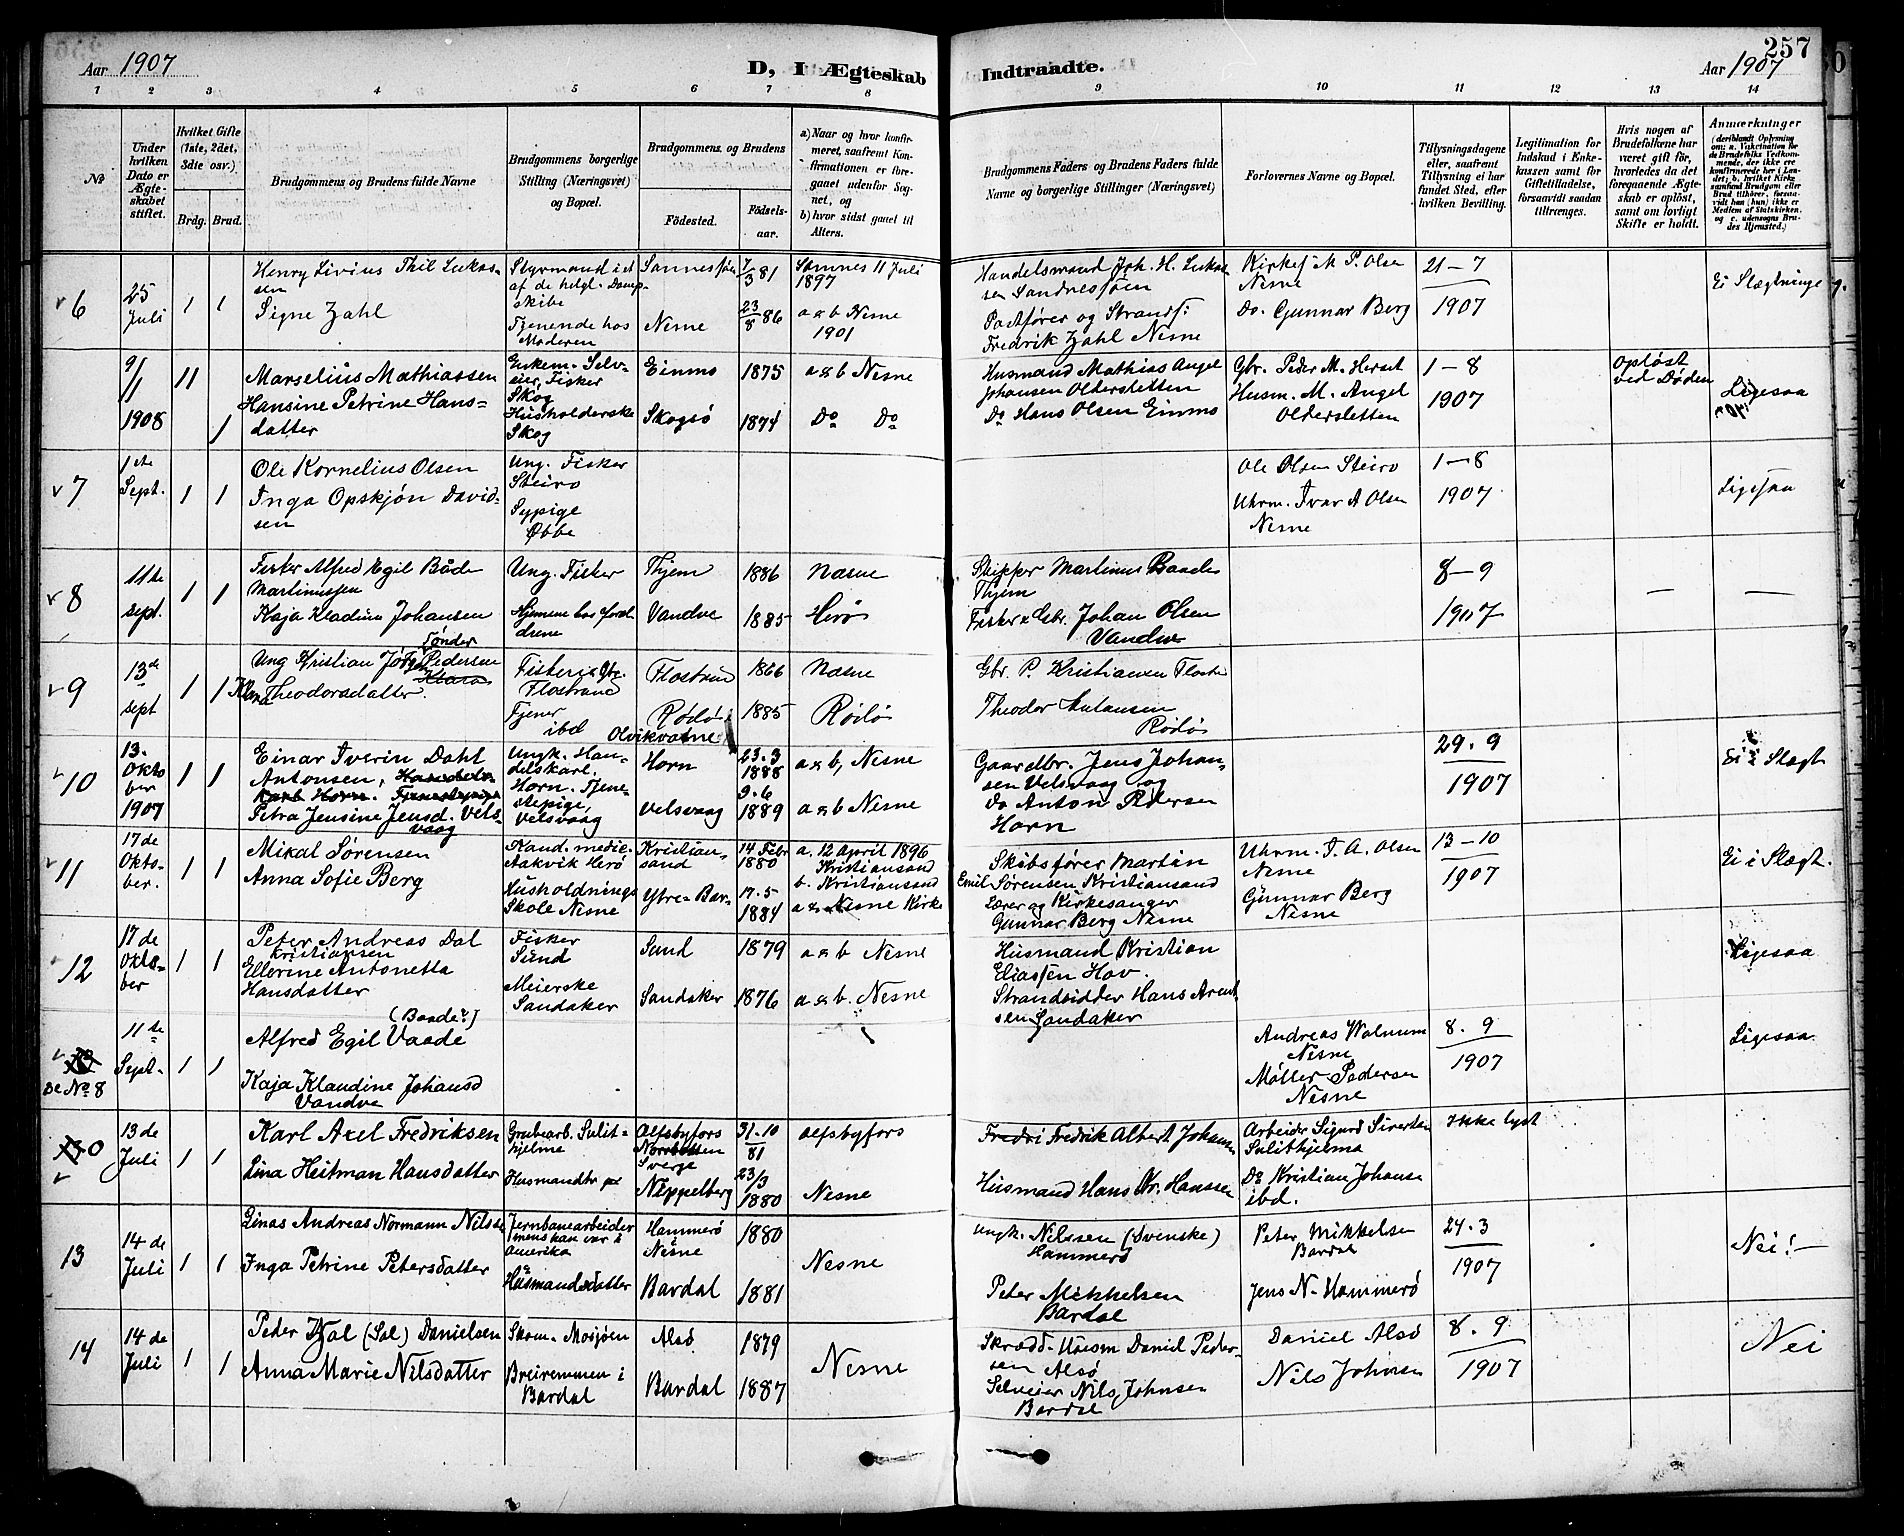 Aar 1907
D, I Ægteskab Indtraadte.
Aar 1907
257
1 2 3 4 5 6 7 8 9 10 11 12 13 14
№
Under hvilken Dato er Ægteskabet stiftet.
Hvilket Gifte (1ste, 2det, 3die osv.)
Brdg. Brud.
Brudgommens og Brudens fulde Navne
Brudgommens borgerlige Stilling (Næringsvei) og Bopæl.
Brudgommens og Brudens
Fødested.
Fødselsaar.
a) Naar og hvor konfirmeret, saafremt Konfirmationen er foregaaet udenfor Sognet, og
b) hvor sidst gaaet til Alters.
Brudgommens Faders og Brudens Faders fulde Navne og borgerlige Stillinger (Næringsvei)
Forlovernes Navne og Bopæl.
Tillysningsdagene eller, saafremt Tillysning ei har fundet Sted, efter hvilken Bevilling.
Legitimation for Indskud i Enkekassen samt for Giftetilladelse, forsaavidt saadan tiltrænges.
Hvis nogen af Brudefolkene har været gift før, hvorledes da det foregaaende Ægteskab er opløst, samt om lovligt Skifte er holdt.
Anmærkninger
6
25 Juli
1 1
Henry Livius Thil Lukassen
Signe Zahl
Styrmand i et af de helgl. Dampskibe
Tjenende hos Moderen
Sannesjøen
Nesne
7/3 81
23/8 86
Stamnes 11 Juli 1897
a & b Nesne 1901
Handelsmand Joh. H. Lukassen Sandnessjøen
Postfører og Strands:
Fredrik Zahl Nesne
Kirkes M P. Olsen Nesne
Do. Gunnar Berg
21–7
1907
Ei Slægtninge
9/1 1908
11
1
Marselius Mathiassen
Hansine Petrine Hansdatter
Enkem. Selveier, Fisker Skog
Husholderske Skog
Einmo
Skogsø
1875
1874
a & b Nesne
Do Do
Husmand Mathias Angel Johansen Oldersletten
Do Hans Olsen Einmo
Gbr. Peder M. Herset
Husm. M. Angel Oldersletten
1–8
1907
opløst ved Døden
Ligesaa
7
1ste Sept.
1 1
Ole Kornelius Olsen
Inga Opskjøn Davidsen
Ung. Fisker Steiro
Sypige Øbbe
Ole Olsen Steiro
Uhrm. Ivar A Olsen Nesne
1–8
1907
Ligesaa
8
11te sept.
1 1
Fisker Alfred Egil Både Martinussen
Kaja Kladine Johansen
Ung. Fisker
Hjemme hos Forældrene
Thjem
Vandve
1886
1885
Næsne
Herø
Skipper Martinus Baade Thjem
Fisker & Gbr. Johan Olsen Vandve
8–9
1907
9
13de sept
1 1
Ung Kristian Jørgen Tønder Pedersen
Klara Theodorsdatter
Fisker & Gbr. Flostrand
Tjener ibd
Flostrand
Rødø
Olvikvatne
1866
1885
Næsne
Rødø
Gbr. P. Kristiansen Flostr
Theodor Antonsen Rødø
10
13. Oktober 1907
1 1
Einar Iverin Dahl Antonsen,
Petra Jensine Jensd. Velsvaag
Ungk. Handelskarl. Horn. Tjenestepige, Velsvaag
Horn
Velsvaag
23.3 1888
9.6 1889
a & b, Nesne
a & b Nesne
Gaardbr. Jens Johansen Velsvaag og
Do Anton Pedersen Horn
29.9
1907
Ei i Slægt
11
17de Oktober.
1 1
Mikal Sørensen
Anna Sofie Berg
Kand. medic. Aakvik Herø
Husholdnings Skole Nesne
Kristiansand
Ytre-Bar-
14 Febr 1880
17.5 1884
a. 12 April 1896 Kristiansand
b. Kristiansand
a & Nesne Kirke
Skibsfører Martin Emil Sørensen Kristiansand
Lærer og Kirkesanger Gunnar Berg Nesne
Uhrm. I. A. Olsen Nesne
Gunnar Berg Nesne
13–10
1907
Ei i Slægt.
12
17de Oktober
1 1
Peter Andreas Dal Kristiansen
Ellerine Antonetta Hansdatter
Fisker Sund
Meierske Sandaker
Sund
Sandaker
1879
1876
a & b Nesne
a & b. Nesne
Husmand Kristian Eliassen Hov.
Strandsidder Hans Arentsen Sandaker
Ligesaa
Se No 8
11te Sept.
1 1
(Baade?)
Alfred Egil Vaade
Kaja Klaudine Johansd Vandve
Andreas Walnum Nesne
Møller Pedersen Nesne
8.9
1907
Ligesaa
0
13de Juli
1 1
Karl Axel Fredriksen
Lina Heitman Hansdatter
Grubearb. Sulithjelma
Husmandsdtr
Alfsbyfors Norrbotten Sverge
Nippelberg
31.10 81
23/3 1880
Alfsbyfors
Nesne
Fredri Fredrik Albert Johansen
Husmand Hans Kr. Hanssen
Arbeider Sigurd Sivertsen Sulithjelma
Do Kristian Johansen ibd.
Ikke lyst
13
14de Juli
1 1
Einas Andreas Normann Nilsen
Inga Petrine Petersdatter
Jernbanearbeider mens han var i Amerika
Husmandsdatter
Hammerø Nesne
Bardal
1880
1881
Nesne
Ungk. Nilssen (Svenske) Hammerø
Peter Mikkelsen Bardal
Peter Mikkelsen Bardal
Jens N. Hammerø
24.3
1907
Nei!–
14
14de Juli
1 1
Peder Zal (Sal) Danielsen
Anna Marie Nilsdatter
Skom. Mosjøen
Breiremmen i Bardal
Alsø
Bardal
1879
1887
Nesne
Skrædd. Husm Daniel Pedersen Alsø
Selveier Nils Johnsen Bardal
Daniel Alsø
Nils Johnsen
8.9
1907
Nei